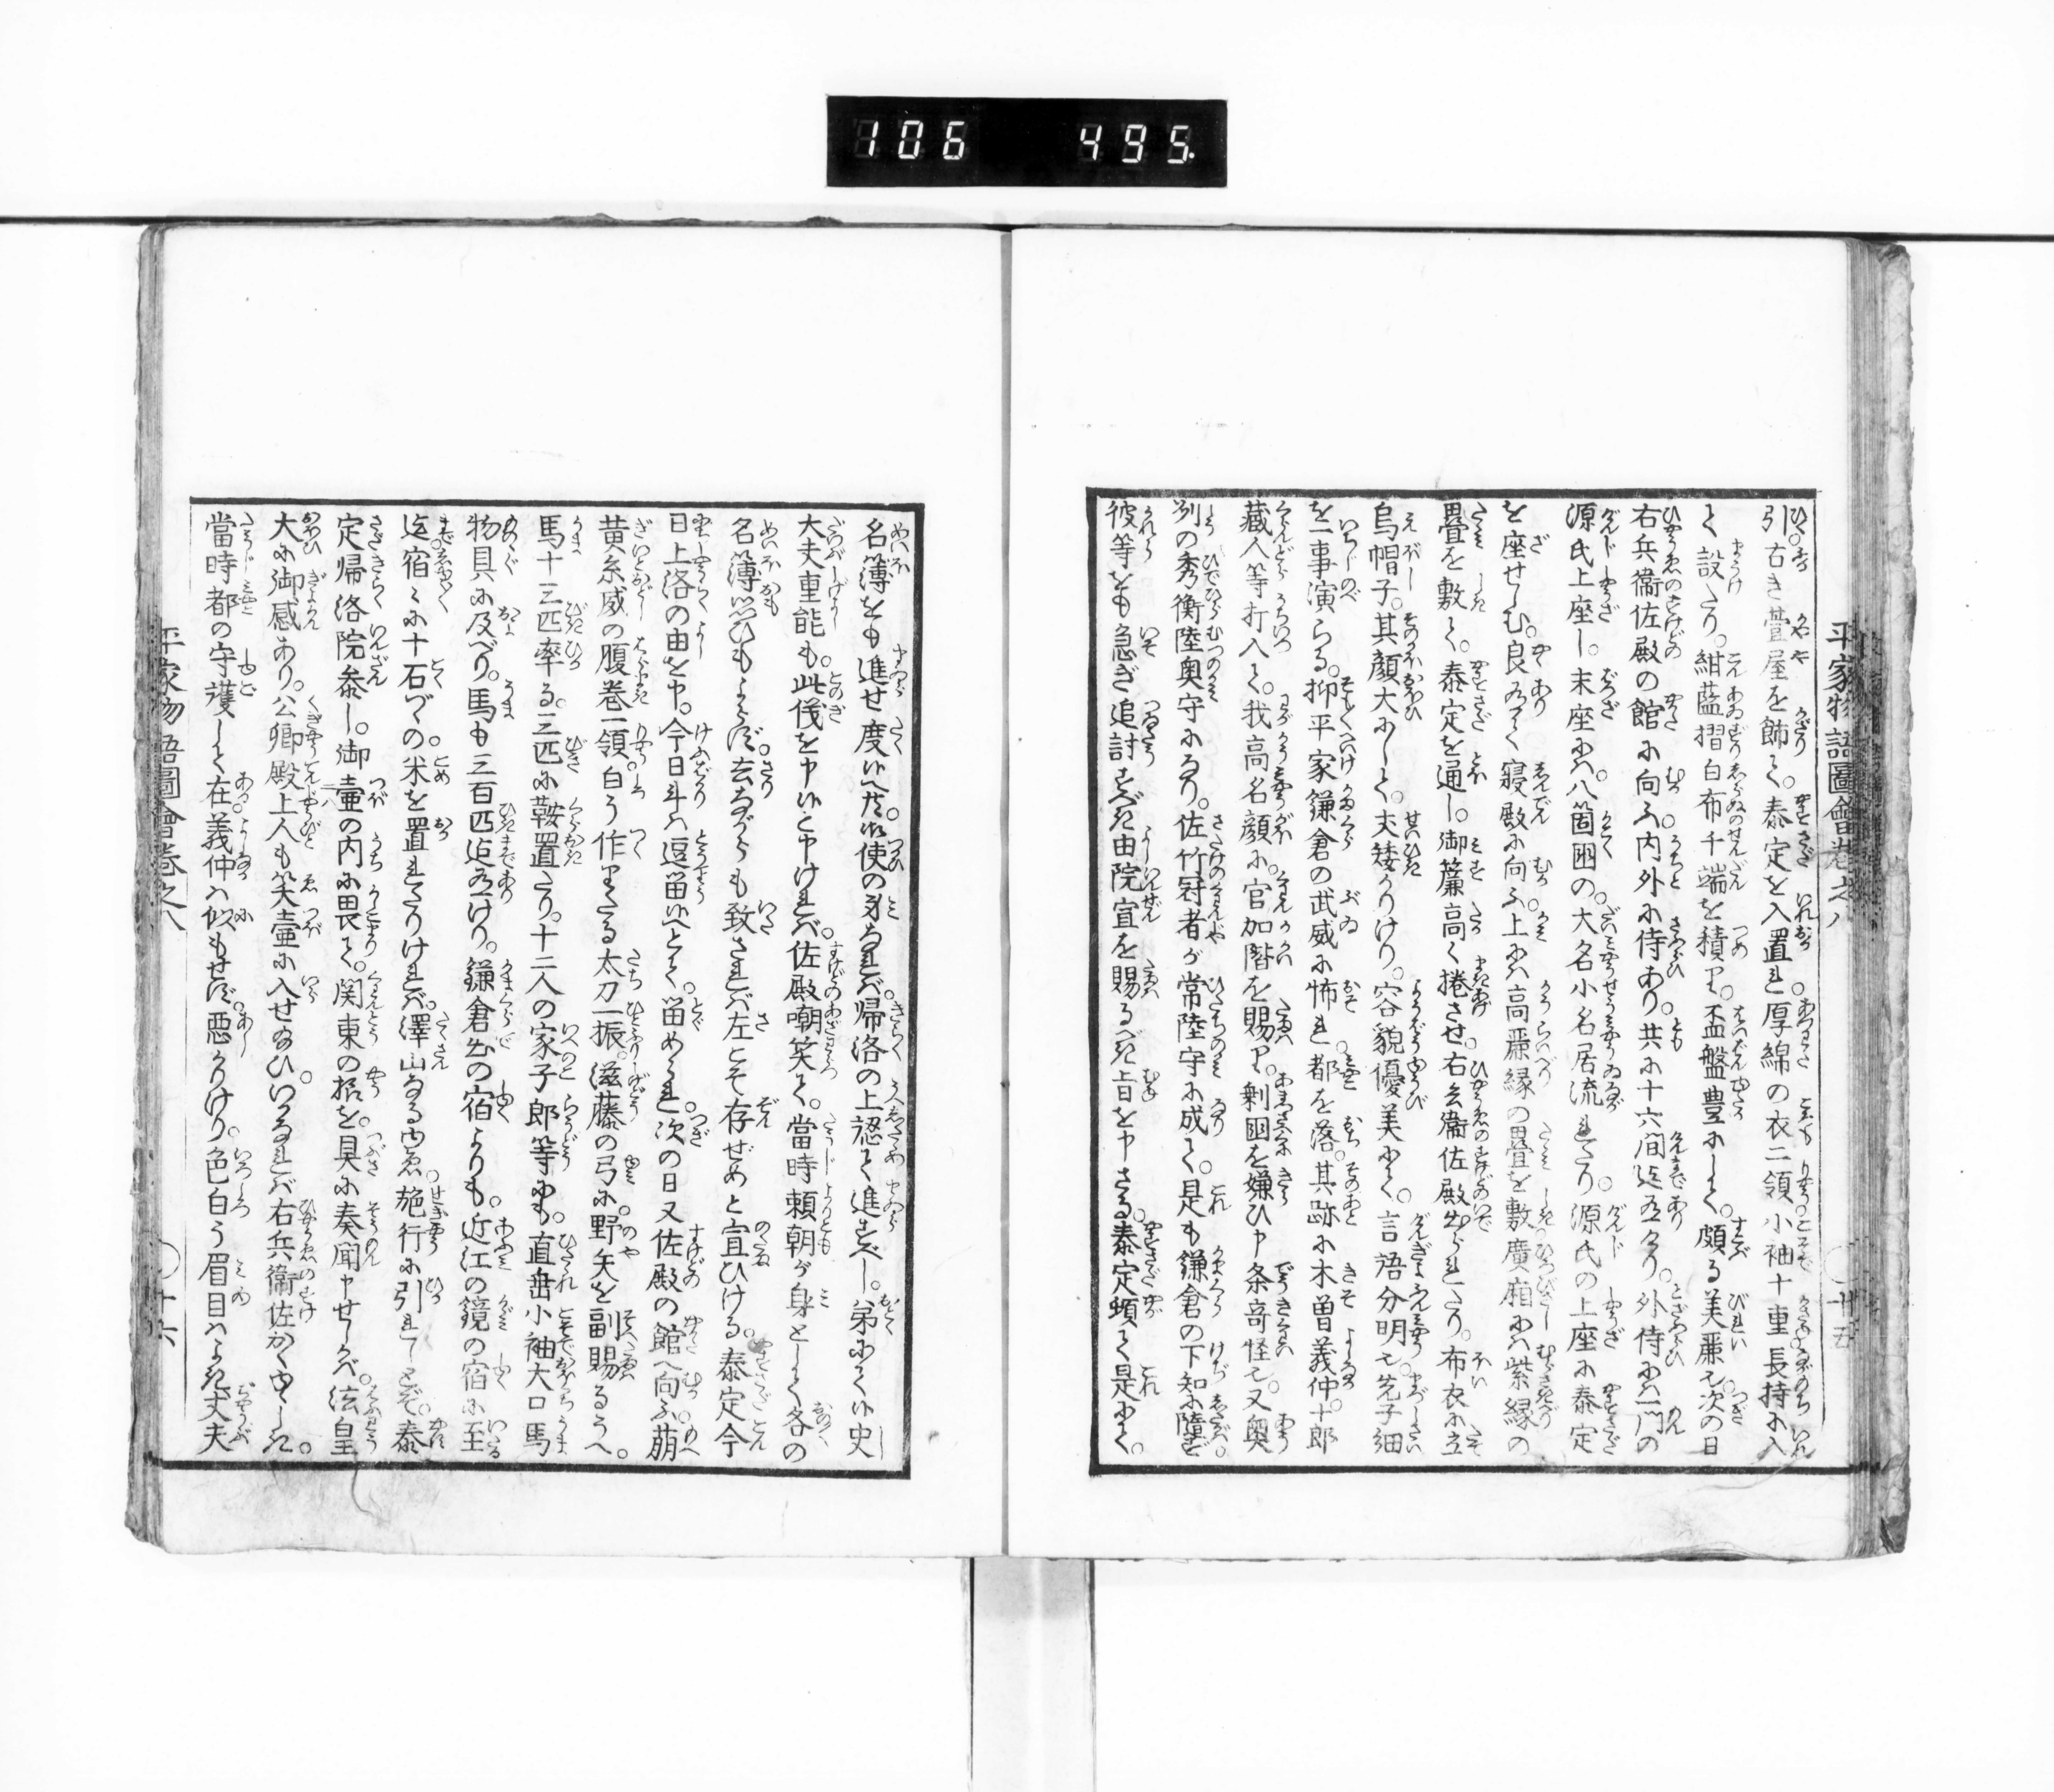 106 495.
平家物語圖會卷之八 〇十五
引。古き萱屋を飾て。泰定を入置れ。厚綿の衣二領。小袖十重長持に入
て設たり。紺藍摺白布千端を積り。盃盤豊にして。頗る美麗也。次の日
右兵衞佐殿の館に向ふ。内外に侍あり。共に十六間迄有けり。外侍には一門の
源氏上座し。末座には。八箇国の。大名小名居流れたり。源氏の上座に泰定
を座せしむ。良有て寝殿に向ふ。上には高麗縁の畳を敷。廣廂には紫縁の
畳を敷て。泰定を通し。御簾高く捲させ。右兵衞佐殿出られたり。布衣に立
烏帽子。其顔大にして。丈矮かりけり。容貌優美にて。言語分明也。先子細
を一事演らる。抑平家鎌倉の武威に怖れ。都を落。其跡に木曽義仲。十郎
藏人等打入て。我高名顔に。官加階を賜り。剰国を嫌ひ申条奇怪也。又奥
州の秀衡陸奥守になり。佐竹冠者が常陸守に成て。是も鎌倉の下知に随ず。
彼等をも急ぎ追討すべき由院宣を賜るべき旨を申さる。泰定頭て是にて。
名簿をも進せ度候へ共。御使の身なれば。帰洛の上認て進すべし。弟にて候史
大夫重能も。此儀を申候と申ければ。佐殿嘲笑て。當時頼朝が身として各の
名簿思ひもよらず。去ながらも致されば左こそ存ぜめと宣ひける。泰定今
日上洛の由を申。今日斗ハ逗留候へとて。留めらる。次の日又佐殿の館へ向ふ。萠
黄糸威の腹巻一領。白う作りたる太刀一振。滋藤の弓に。野矢を副賜るうへ。
馬十三匹率る。三匹に鞍置たり。十二人の家子郎等にも。直垂小袖大口馬
物具に及べり。馬も三百匹迄有けり。鎌倉出の宿よりも。近江の鏡の宿に至
迄。宿々に十石づゝの。米を置れたりければ。澤山なる故。施行に引れしとぞ。泰
定帰洛院参し。御壷の内に畏て。関東の様を。具に奏聞申せしかバ。法皇
大に御感あり。公卿殿上人も笑壷に入せ給ひ。いかなれば右兵衞佐かくゆゝしき。
當時都の守護して在。義仲ハ似もせず。悪かりけり。色白う眉目ハよき丈夫
平家物語圖會卷之八 〇十六